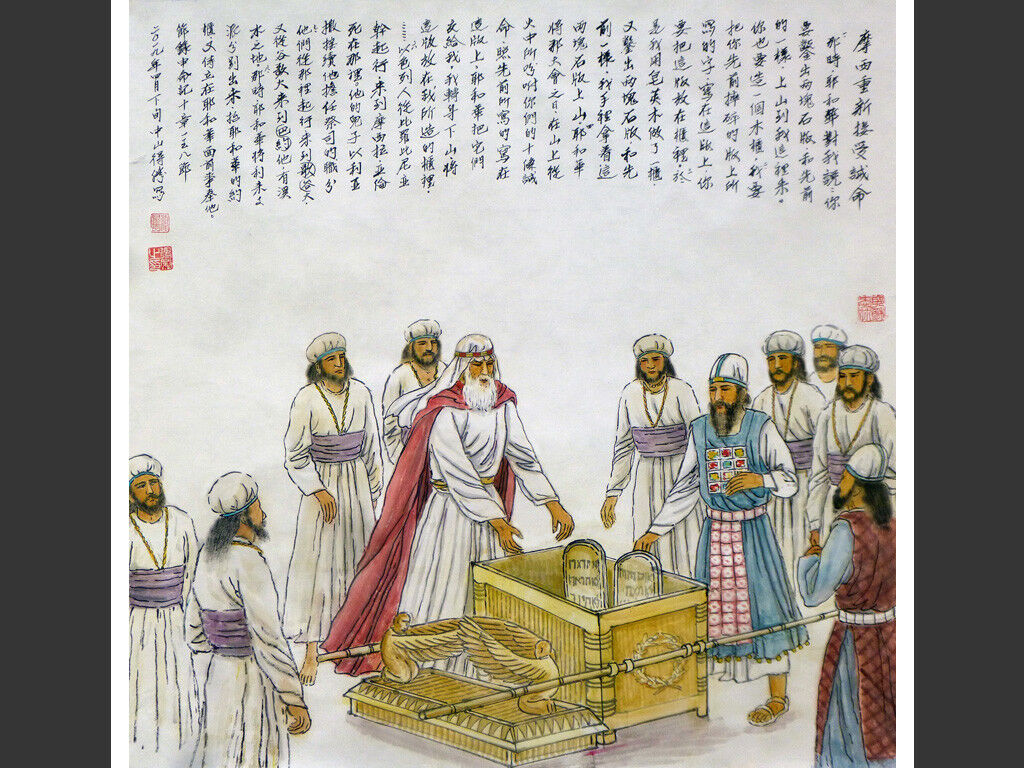 摩西重新接受誡命
那時耶和華對我說：你
要鑿出兩塊石版,和先前
的一樣,上山到我這裡來。
你也要造一個木櫃,我要
把你先前摔碎的版上所
寫的字,寫在這版上,你
要把這版放在櫃裡,於
是我用皂莢木做了一櫃,
又鑿出兩塊石版,和先
前一樣,我手裡拿着這
兩塊石版上山,耶和華
將那大會之日,在山上從
火中所吩咐你們的十條誡
命,照先前所寫的,寫在
這版上,耶和華把它們
交給我,我轉身下山,將
這版放在我所造的櫃裡,
……以色列人從比羅比尼亞
幹起行,來到摩西拉,亞倫
死在那裡,他的兒子以利亞
撒接續他擔任祭司的職分
他們從那裡起行來到歌谷大,
又從谷歌大來到巴約他有溪
水之地,那時耶和華將利未支
派分別出來,抬耶和華的約
櫃又侍立在耶和華面前事奉他。
節錄申命記十章一至八節
二〇一九年四月下旬中山得寫